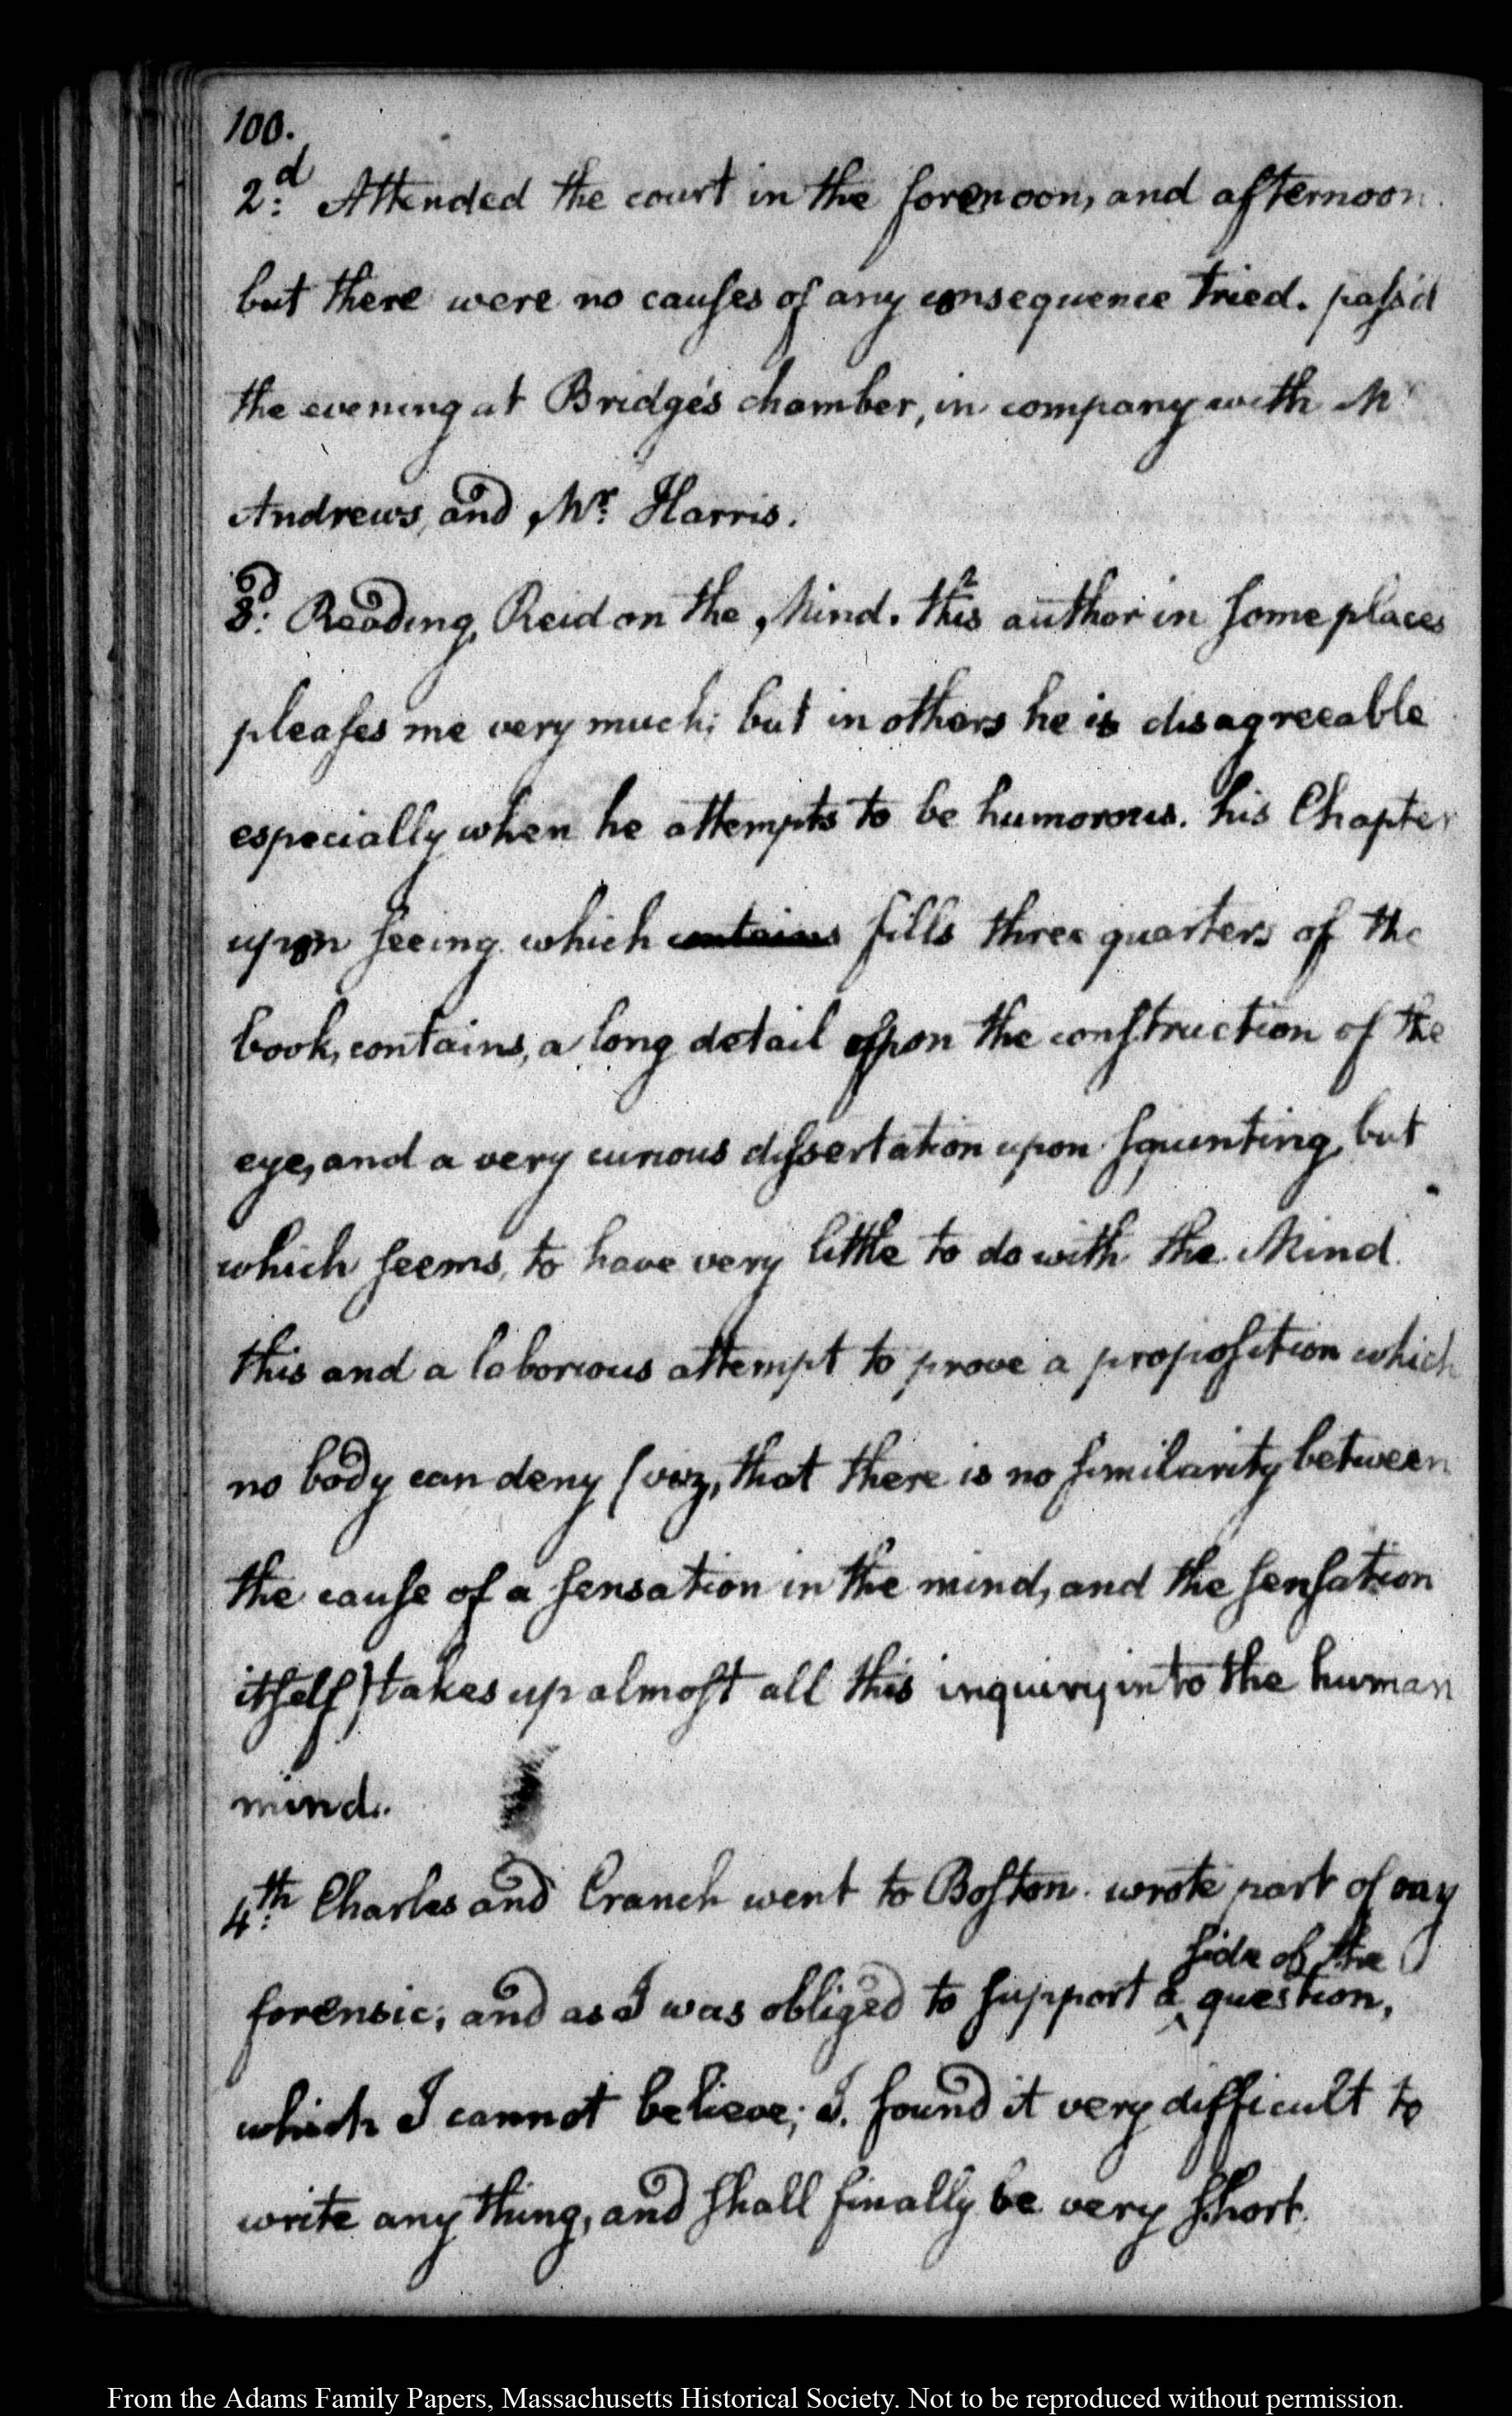 100.
2.d Attended the court in the forenoon, and afternoon.
but there were no causes of any consequence tried. pass'd
the evening at Bridge's chamber, in company with Mr
Andrews, and Mr. Harris.
3.d Reading, Reid on the Mind. this author in some places
pleases me very much; but in others he is disagreeable
especially when he attempts to be humorous. his Chapter
upon seeing which contains fills three quarters of the
book, contains, a long detail upon the construction of the
eye, and a very curious dissertation upon squinting, but
which seems, to have very little to do with the Mind.
this and a laborious attempt to prove a proposition which
no body can deny (viz, that there is no similarity between
the cause of a sensation in the mind, and the sensation
itself) takes up almost all this inquiry into the human
mind.
4.th Charles and Cranch went to Boston. wrote part of my
side of the
forensic; and as I was obliged to support a ‸ question,
which I cannot believe; I. found it very difficult to
write any thing, and shall finally be very short.
From the Adams Family Papers, Massachusetts Historical Society. Not to be reproduced without permission.